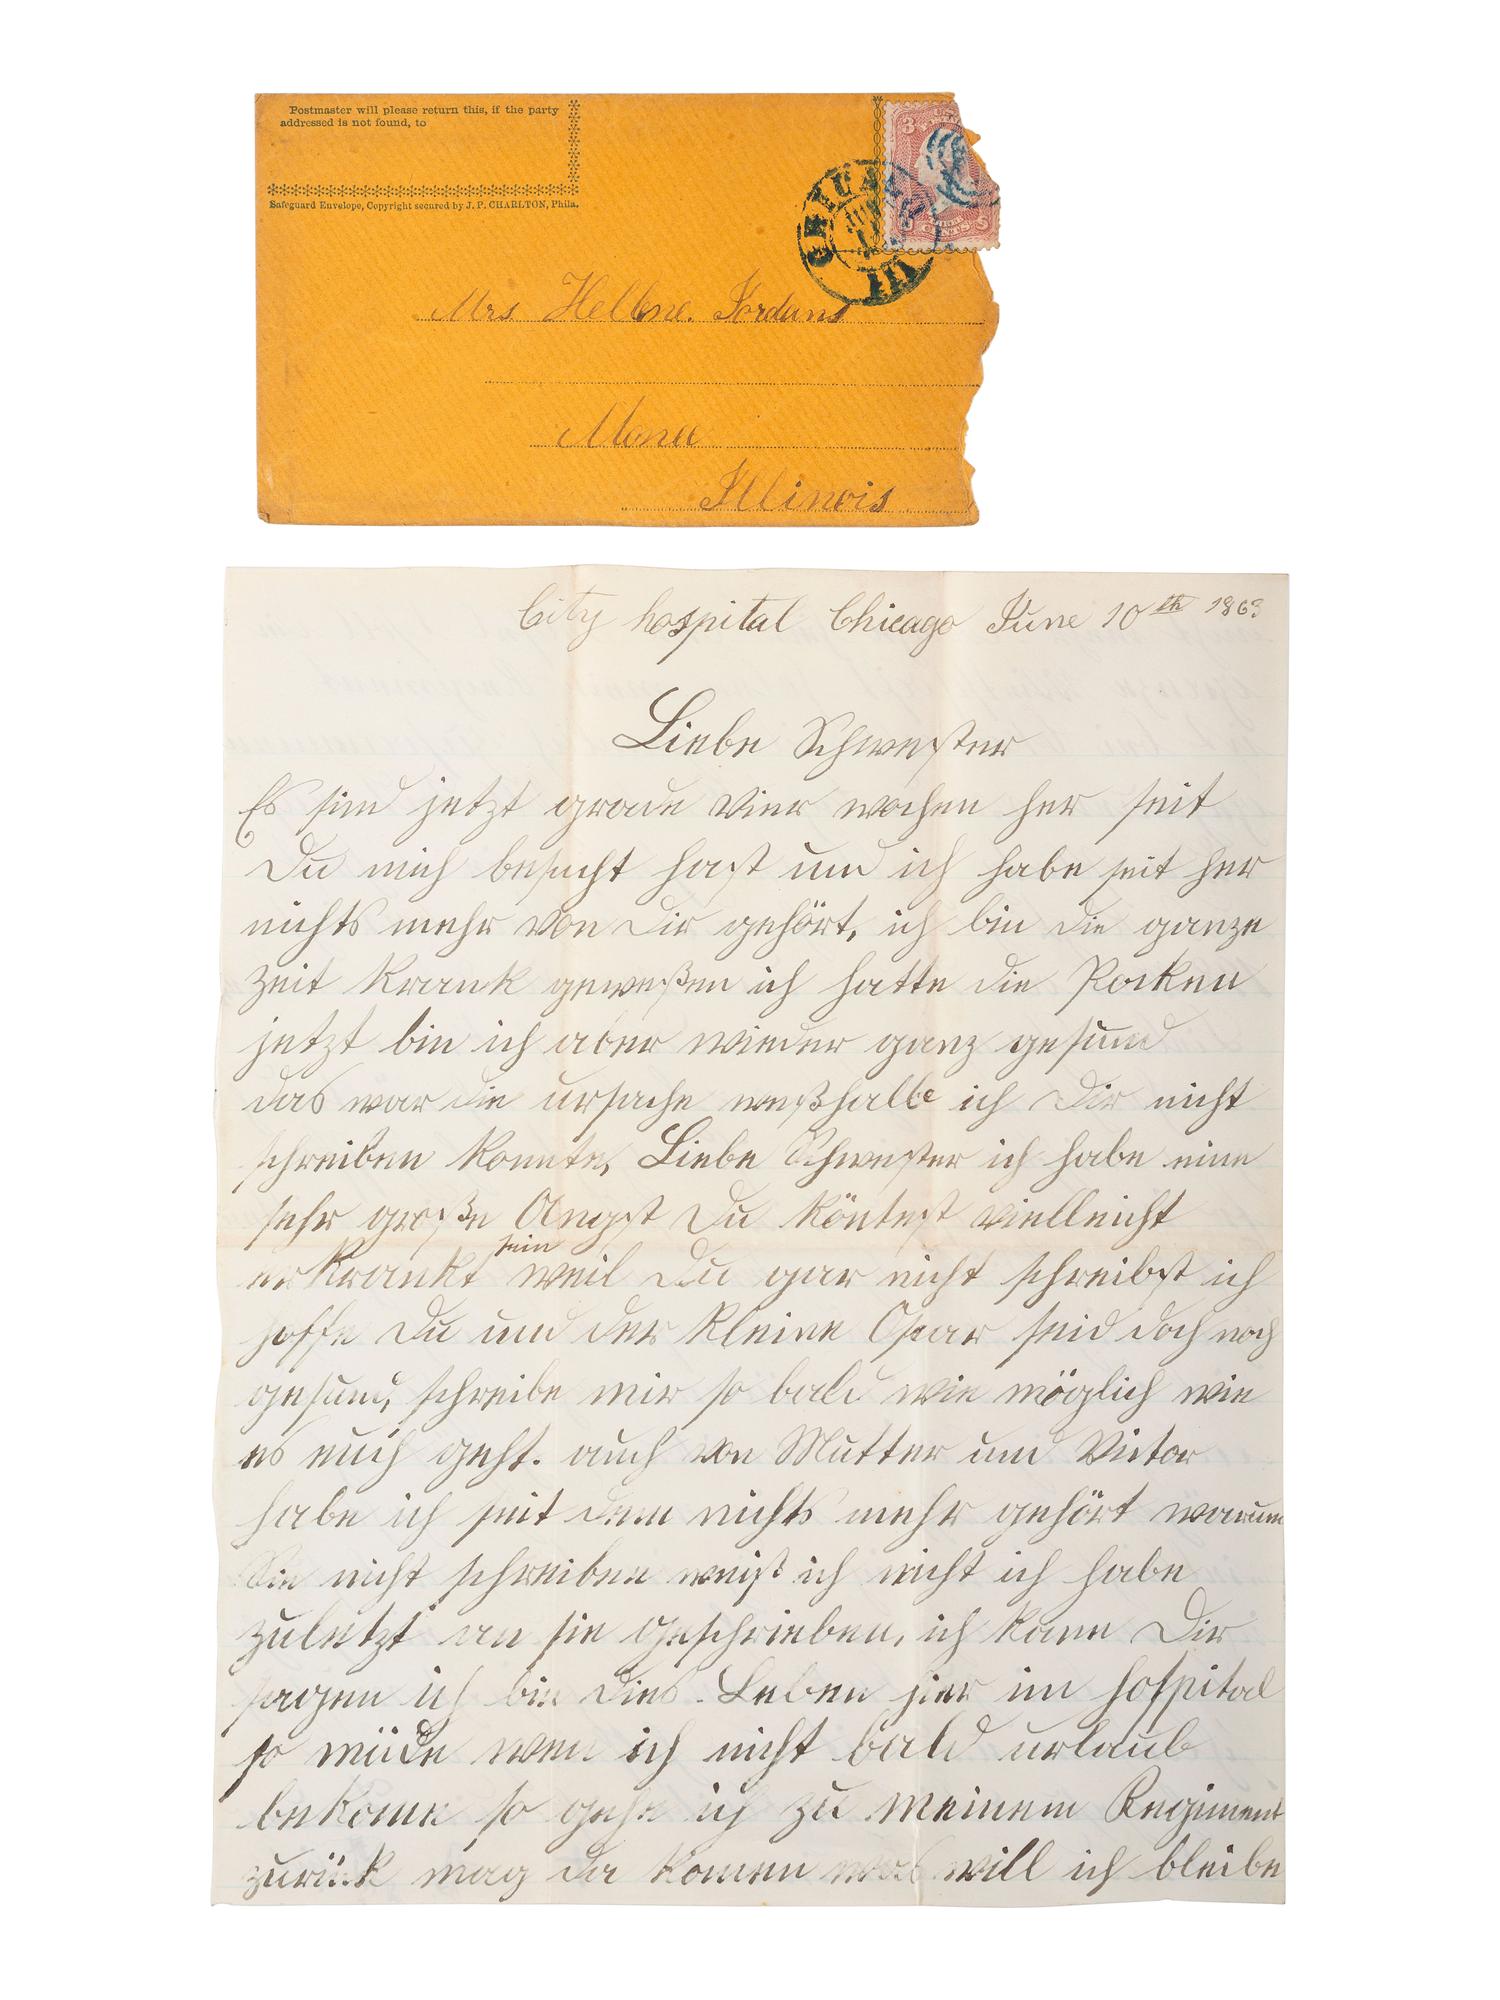 Postmaster will please return this, if the party
addressed is not found, to
Safeguard Envelope, Copyright secured by J. P. CHARLTON, Phila.
3
CHICAGO
ILL
Mrs Hellene. Jordans
Monee
Illinois
City hospital Chicago June 10th 1863
Liebe Schwester
Es sind jetzt grade vier wochen her seit
Du mich besucht hast und ich habe seit her
nichts mehr von Dir gehört, ich bin die ganze
zeit krank geweßen ich hatte die Pocken
jetzt bin ich aber wieder ganz gesund
das war die ursache weßhalbe ich Dir nicht
schreiben konnte, Liebe Schwester ich habe eine
sehr große Angst Du köntest vielleicht
erkrankt sein weil Du gar nicht schreibst ich
hoffe Du und der kleine Oscar seid doch noch
gesund, schreibe mir so bald wie möglich wie
es euch geht. auch von Mutter und Victor
habe ich seit dem nichts mehr gehört warum
Sie nicht schreiben weist ich nicht ich habe
zuletzt an sie geschrieben, ich kann Dir
sagen ich bin dies Leben hier im hospital
so müde wen ich nicht bald urlaub
bekome so gehe ich zu meinem Regiment
zurück mag da komen was will ich bleibe